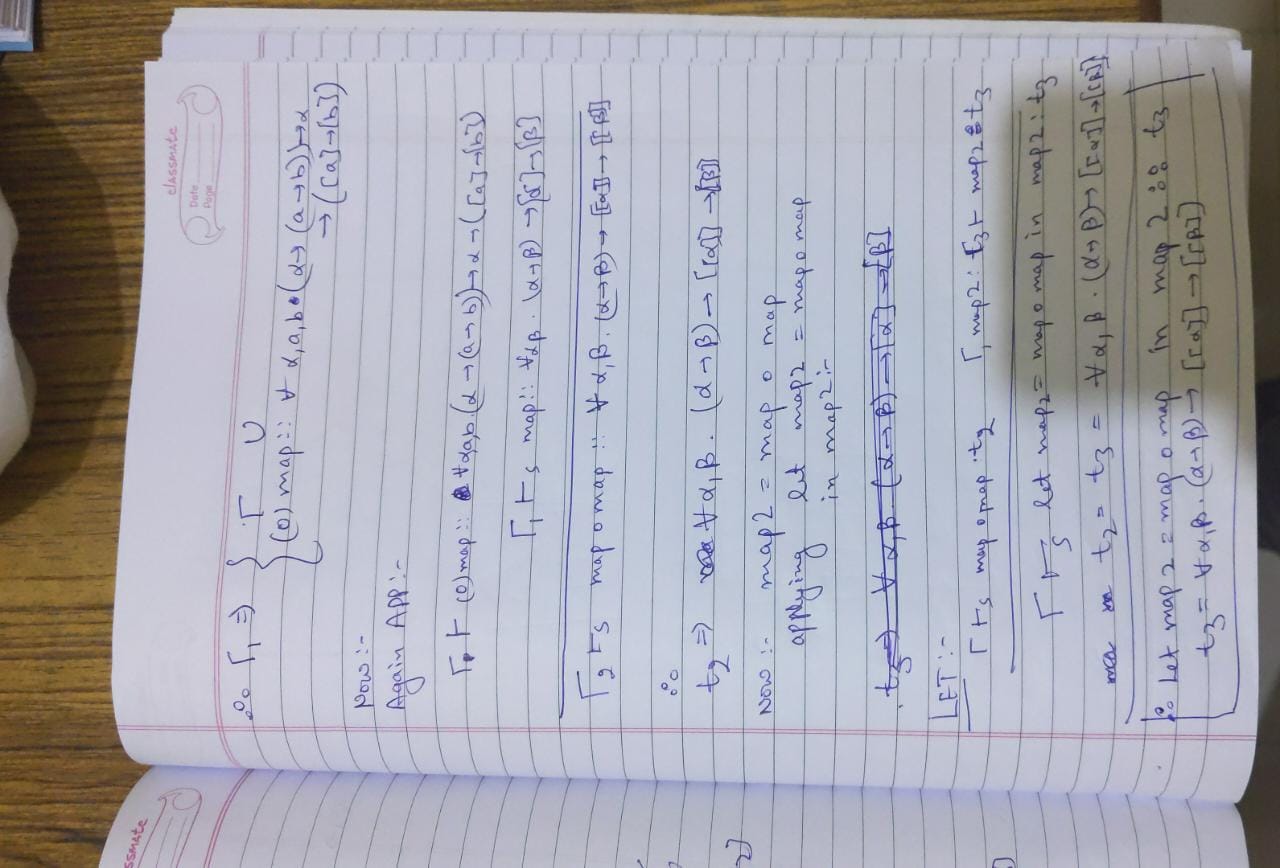 ssmate
classmate
Date
Page
∴ Γ₁ ⇒ { Γ ∪
(o) map :: ∀ α, a, b • (α → (a → b)) → α
→ ([a] → [b])
Now :-
Again APP :-
Γ ⊢ (o) map :: ∀ α,a,b. (α → (a → b)) → α → ([a] → [b])
Γ₁ ⊢s map :: ∀αβ . (α → β) → [α] → [β]
Γ₂ ⊢s map o map :: ∀ α, β. (α → β) → [[α]] → [[β]]
∴
t₂ ⇒ ∀ α, β . (α → β) → [[α]] → [[β]]
2]
Now :- map2 = map o map
applying let map2 = map o map
in map2 :-
t₃ ⇒ ∀ α, β. (α → β) → [α] → [β]
LET :-
Γ ⊢s map o map : t₂ Γ, map2 : t₃ ⊢ map2 : t₃
Γ ⊢s let map₂ = map o map in map2 : t₃
t₂ = t₃ = ∀ α, β . (α → β) → [[α]] → [[β]]
∴ Let map2 = map o map in map 2 :: t₃
t₃ = ∀ α, β. (α → β) → [[α]] → [[β]]